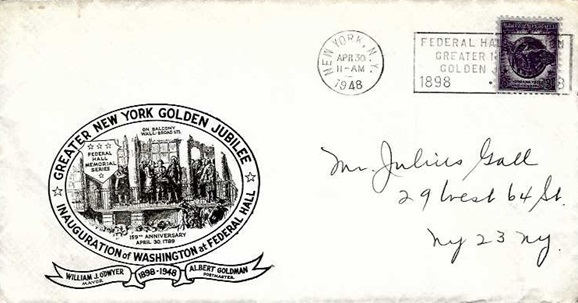 NEW YORK, N.Y.
APR 30
11-AM
1948
FEDERAL HA
GREATER N
GOLDEN J
1898
GREATER NEW YORK GOLDEN JUBILEE
ON BALCONY
WALL-BROAD STS.
FEDERAL
HALL
MEMORIAL
SERIES
159TH ANNIVERSARY
APRIL 30, 1789
INAUGURATION of WASHINGTON at FEDERAL HALL
WILLIAM J. O'DWYER
MAYOR
1898-1948
ALBERT GOLDMAN
POSTMASTER
Mr. Julius Gall
29 West 64 St.
Ny 23 Ny.